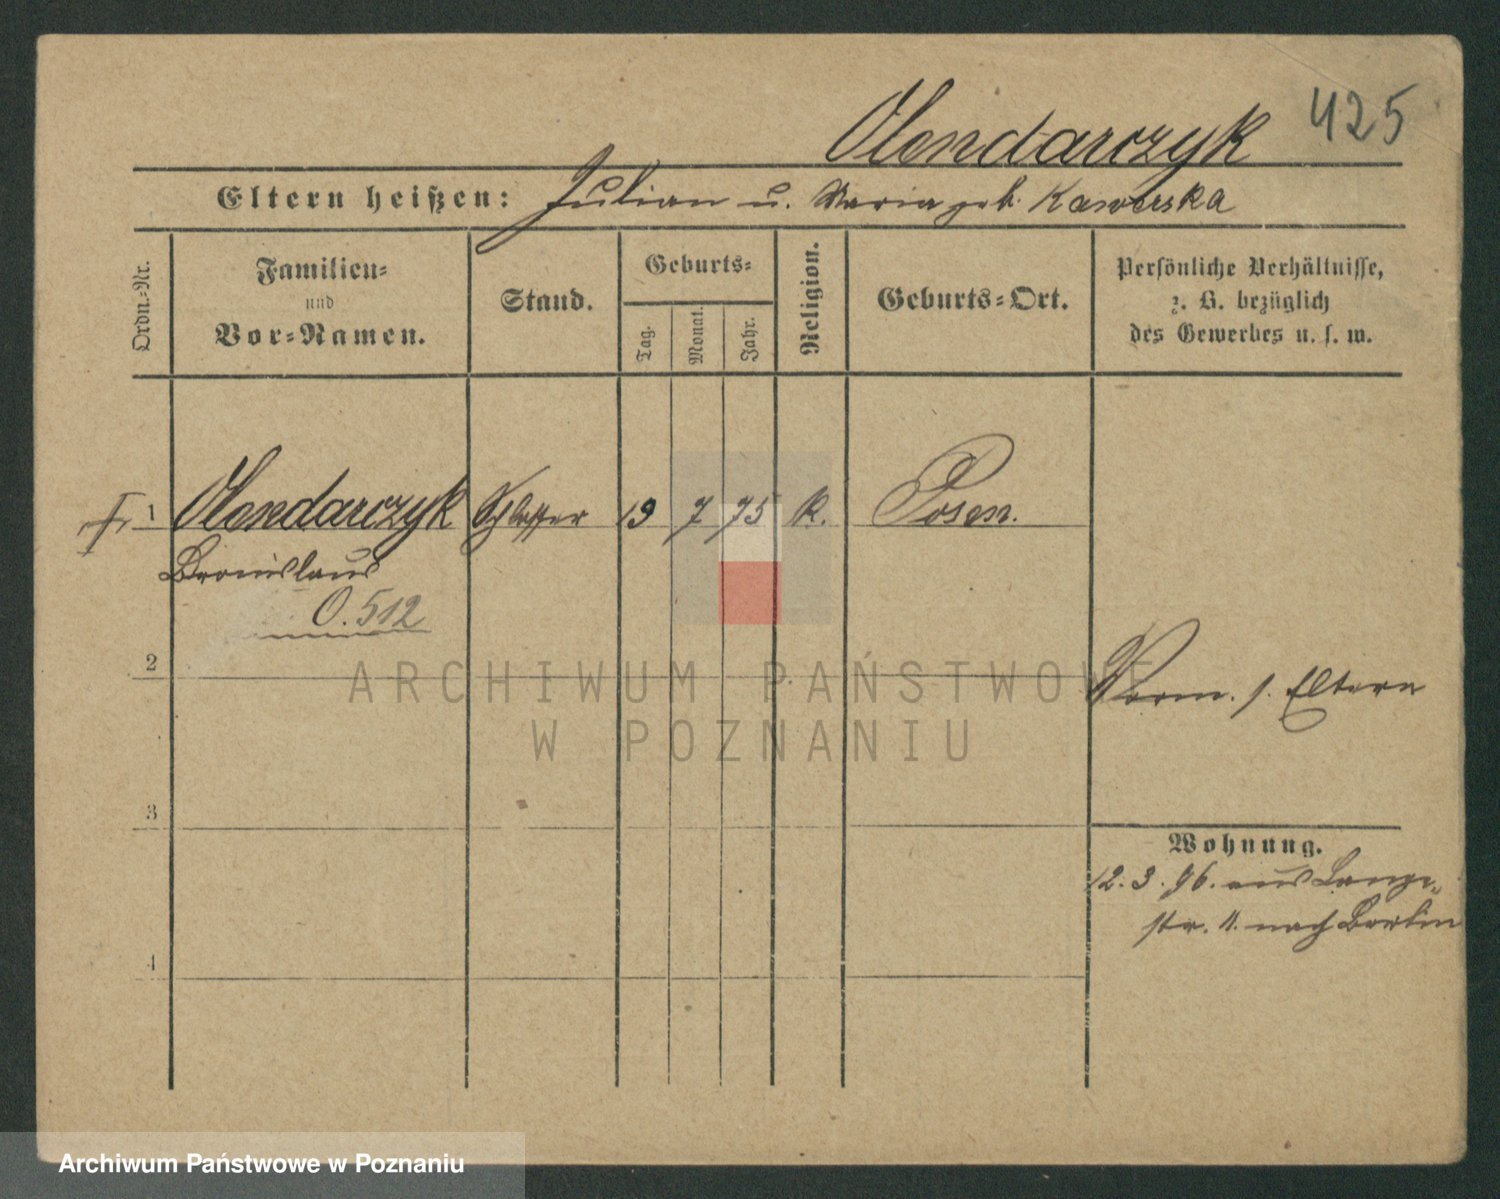 425
Olendarczyk
Eltern heißen: Julian u. Maria geb. Kawerska
Ordn.-Nr.
Familien-
und
Vor-Namen.
Stand.
Geburts-
Tag.
Monat.
Jahr.
Religion.
Geburts-Ort.
Persönliche Verhältnisse,
z. B. bezüglich
des Gewerbes u. s. w.
1 Olendarczyk Schlosser 19 7 75 k. Posen.
Bronislaus
O. 512
2
Verm. s. Eltern
3
Wohnung.
12. 3. 96. aus Lange-
str. 11. nach Berlin
4
ARCHIWUM PAŃSTWOWE
W POZNANIU
Archiwum Państwowe w Poznaniu